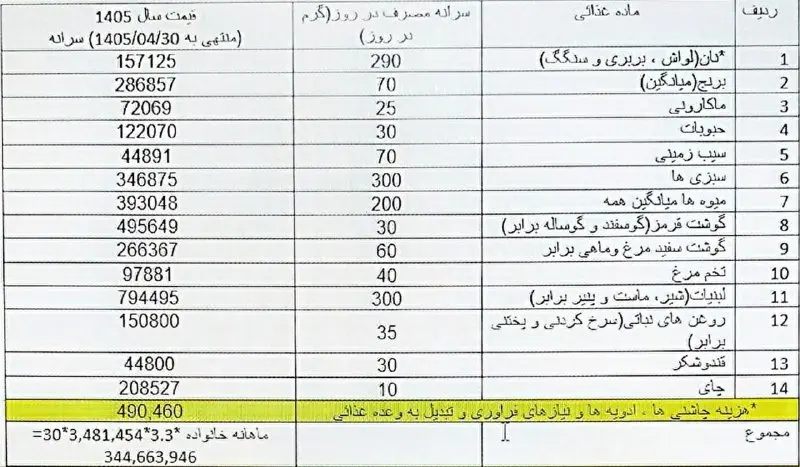 ردیف ماده غذائی سرانه مصرف در روز(گرم در روز) قیمت سال 1405 (منتهی به 1405/04/30) سرانه
1 *نان(لواش ، بربری و سنگگ) 290 157125
2 برنج(میانگین) 70 286857
3 ماکارونی 25 72069
4 حبوبات 30 122070
5 سیب زمینی 70 44891
6 سبزی ها 300 346875
7 میوه ها میانگین همه 200 393048
8 گوشت قرمز(گوسفند و گوساله برابر) 30 495649
9 گوشت سفید مرغ وماهی برابر 60 266367
10 تخم مرغ 40 97881
11 لبنیات(شیر، ماست و پنیر برابر) 300 794495
12 روغن های نباتی(سرخ کردنی و پختنی برابر) 35 150800
13 قندوشکر 30 44800
14 چای 10 208527
*هزینه چاشنی ها ، ادویه ها و نیازهای فراوری و تبدیل به وعده غذائی 490,460
مجموع ماهانه خانواده *3.3*3,481,454*30=
344,663,946